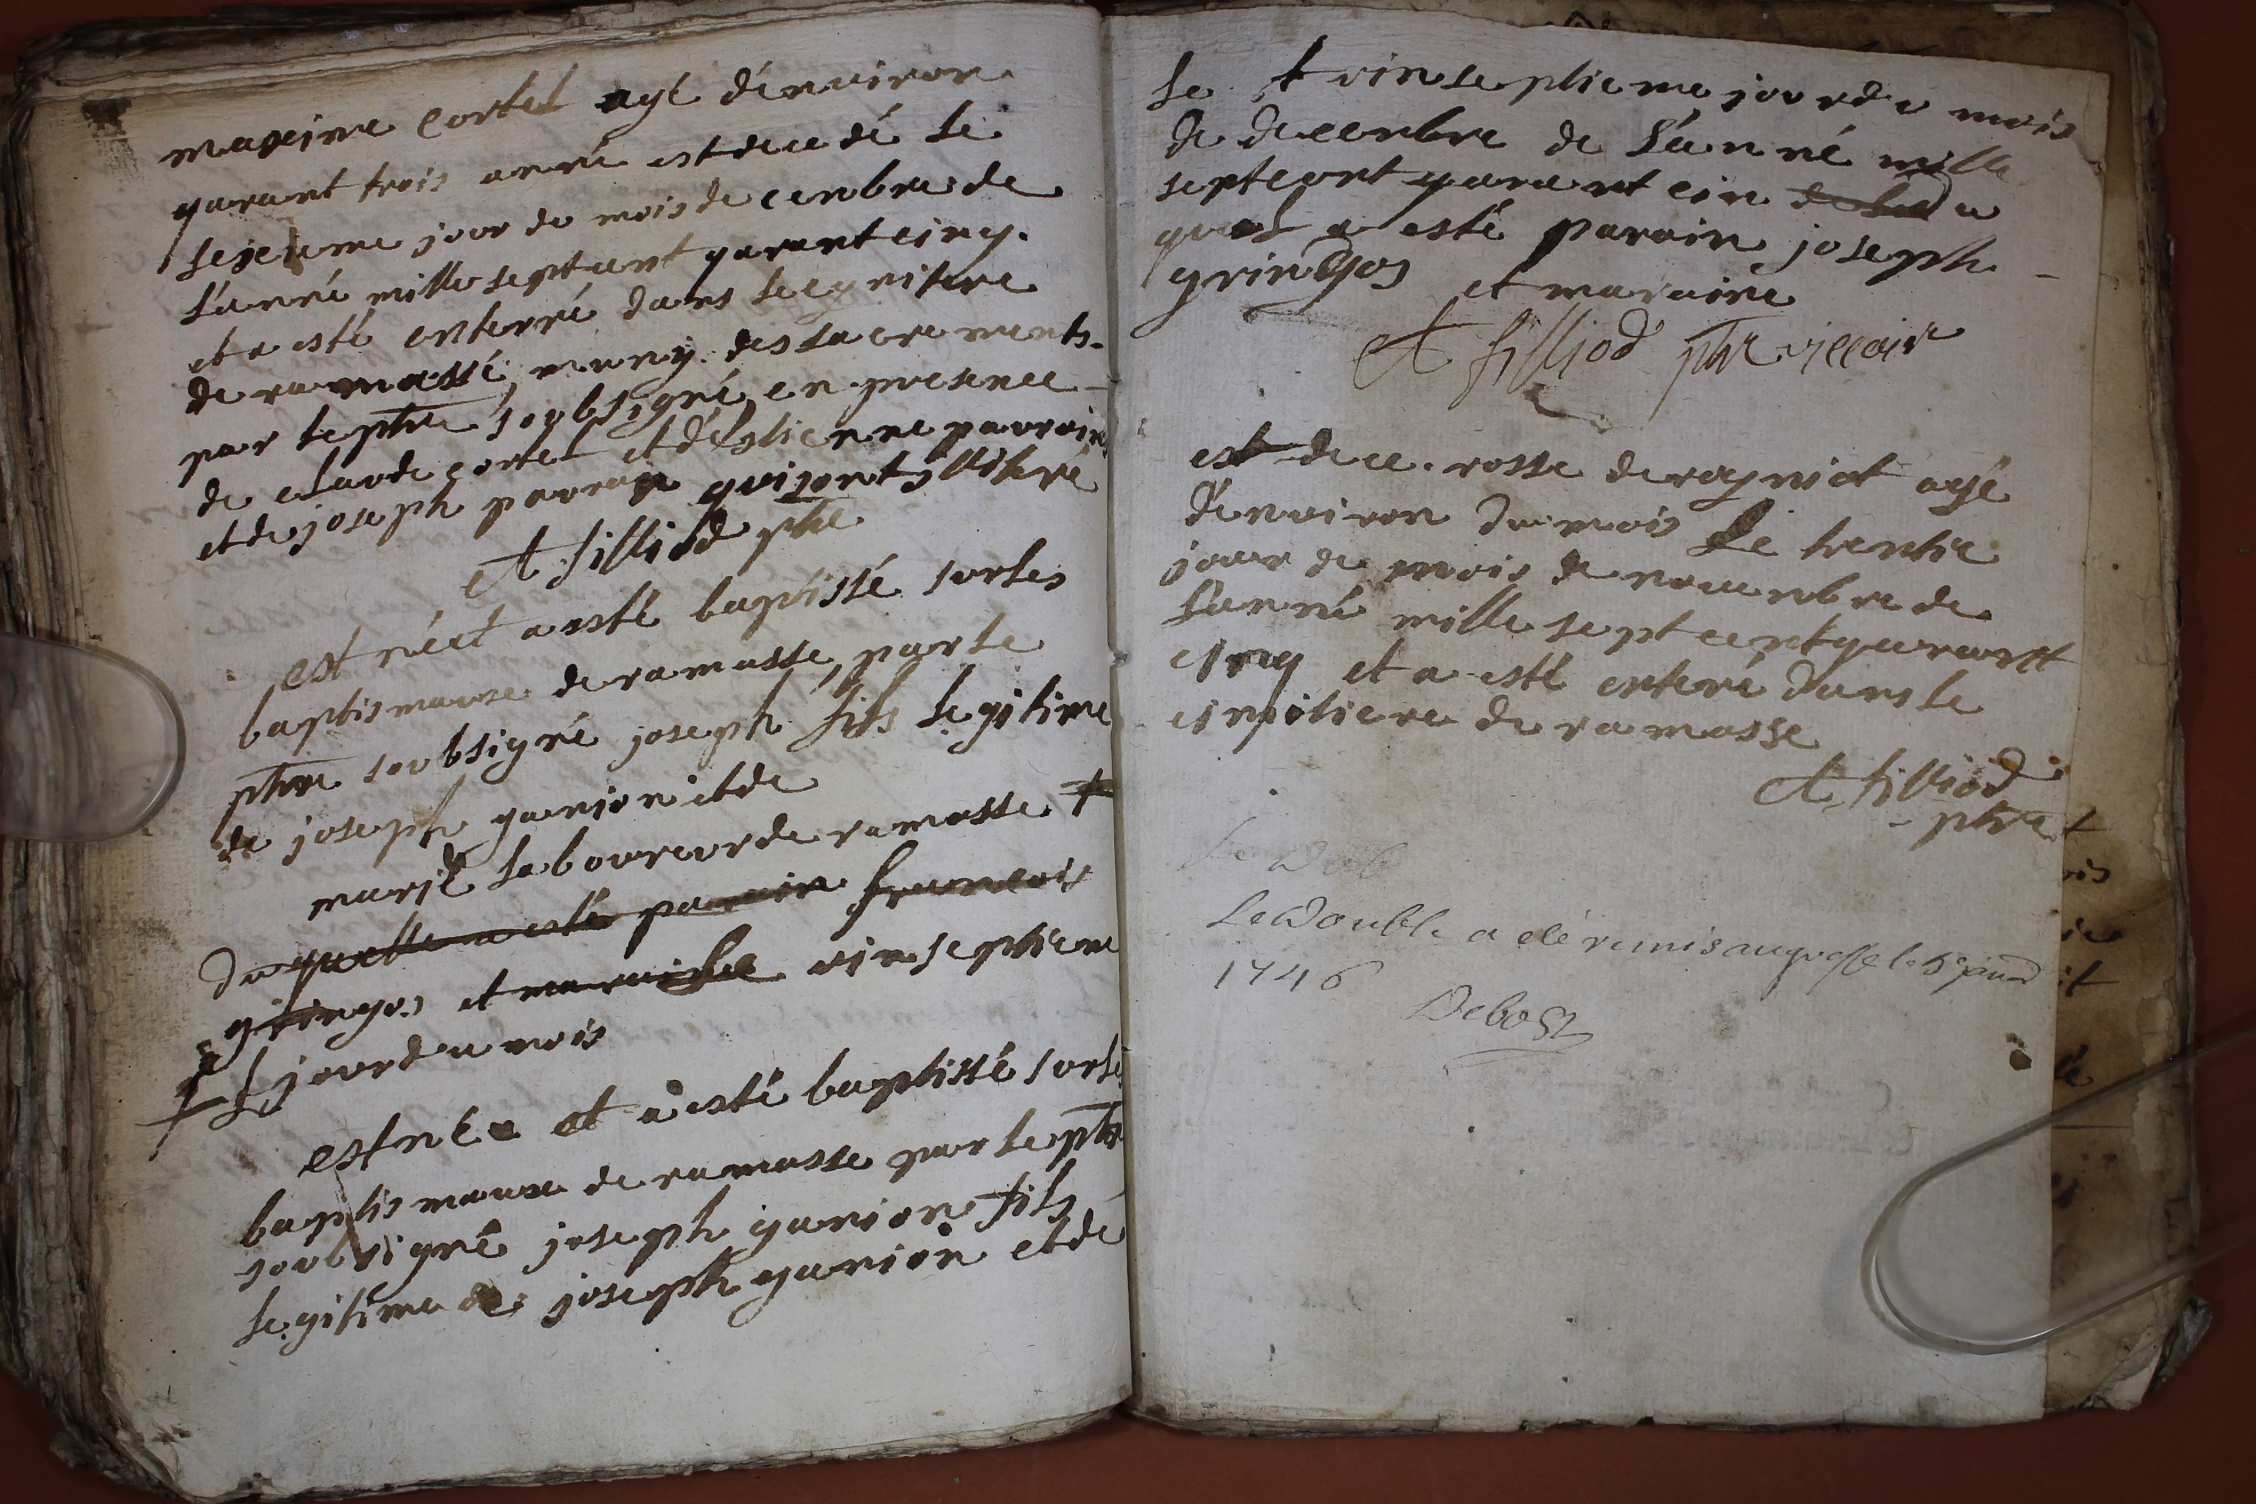 maxime cortet agé dénuiron
quarant trois anné est decedé le
sejeume jour de mois de cenbre de
l'anné mille septcent quarant cinq.
et a esté enterré dans le cymitere
de ramassé, muny des sacrements
par le ptre soubsigné en presence
de claude cortet et déstienne pauroin
et de joseph pauroin qui sont illiteré
A filliod ptre
est néet a esté baptissé sur les
baptismaux de ramasse par le
ptre soubsigné joseph fils legitime
de joseph ganion et de
marie laboureur de ramasse +
du quelle a esté parrain francois
gringos et marraine vinseptieme
+ jour du mois
est née et a esté baptissé sur le
baptismaux de ramasse par le ptre
soubsigné joseph ganion fils
legitime de joseph ganion et de
le vinseptieme jour du mois
de decembre de l'anné mille
septcent quarant cin du
quel a esté parain joseph
gringos et maraine
A filliod ptre viccair
est dece. rosse deroygniat agé
dénuiron du mois le trentie
jour de mois de nouenbre de
l'anné mille sept cent quarant
cinq et a esté enteré dans le
cimitiere de ramasse
A filliod
ptre
Le Dob
Le Double a été remis au greffe le 5e janv
1746
Debost